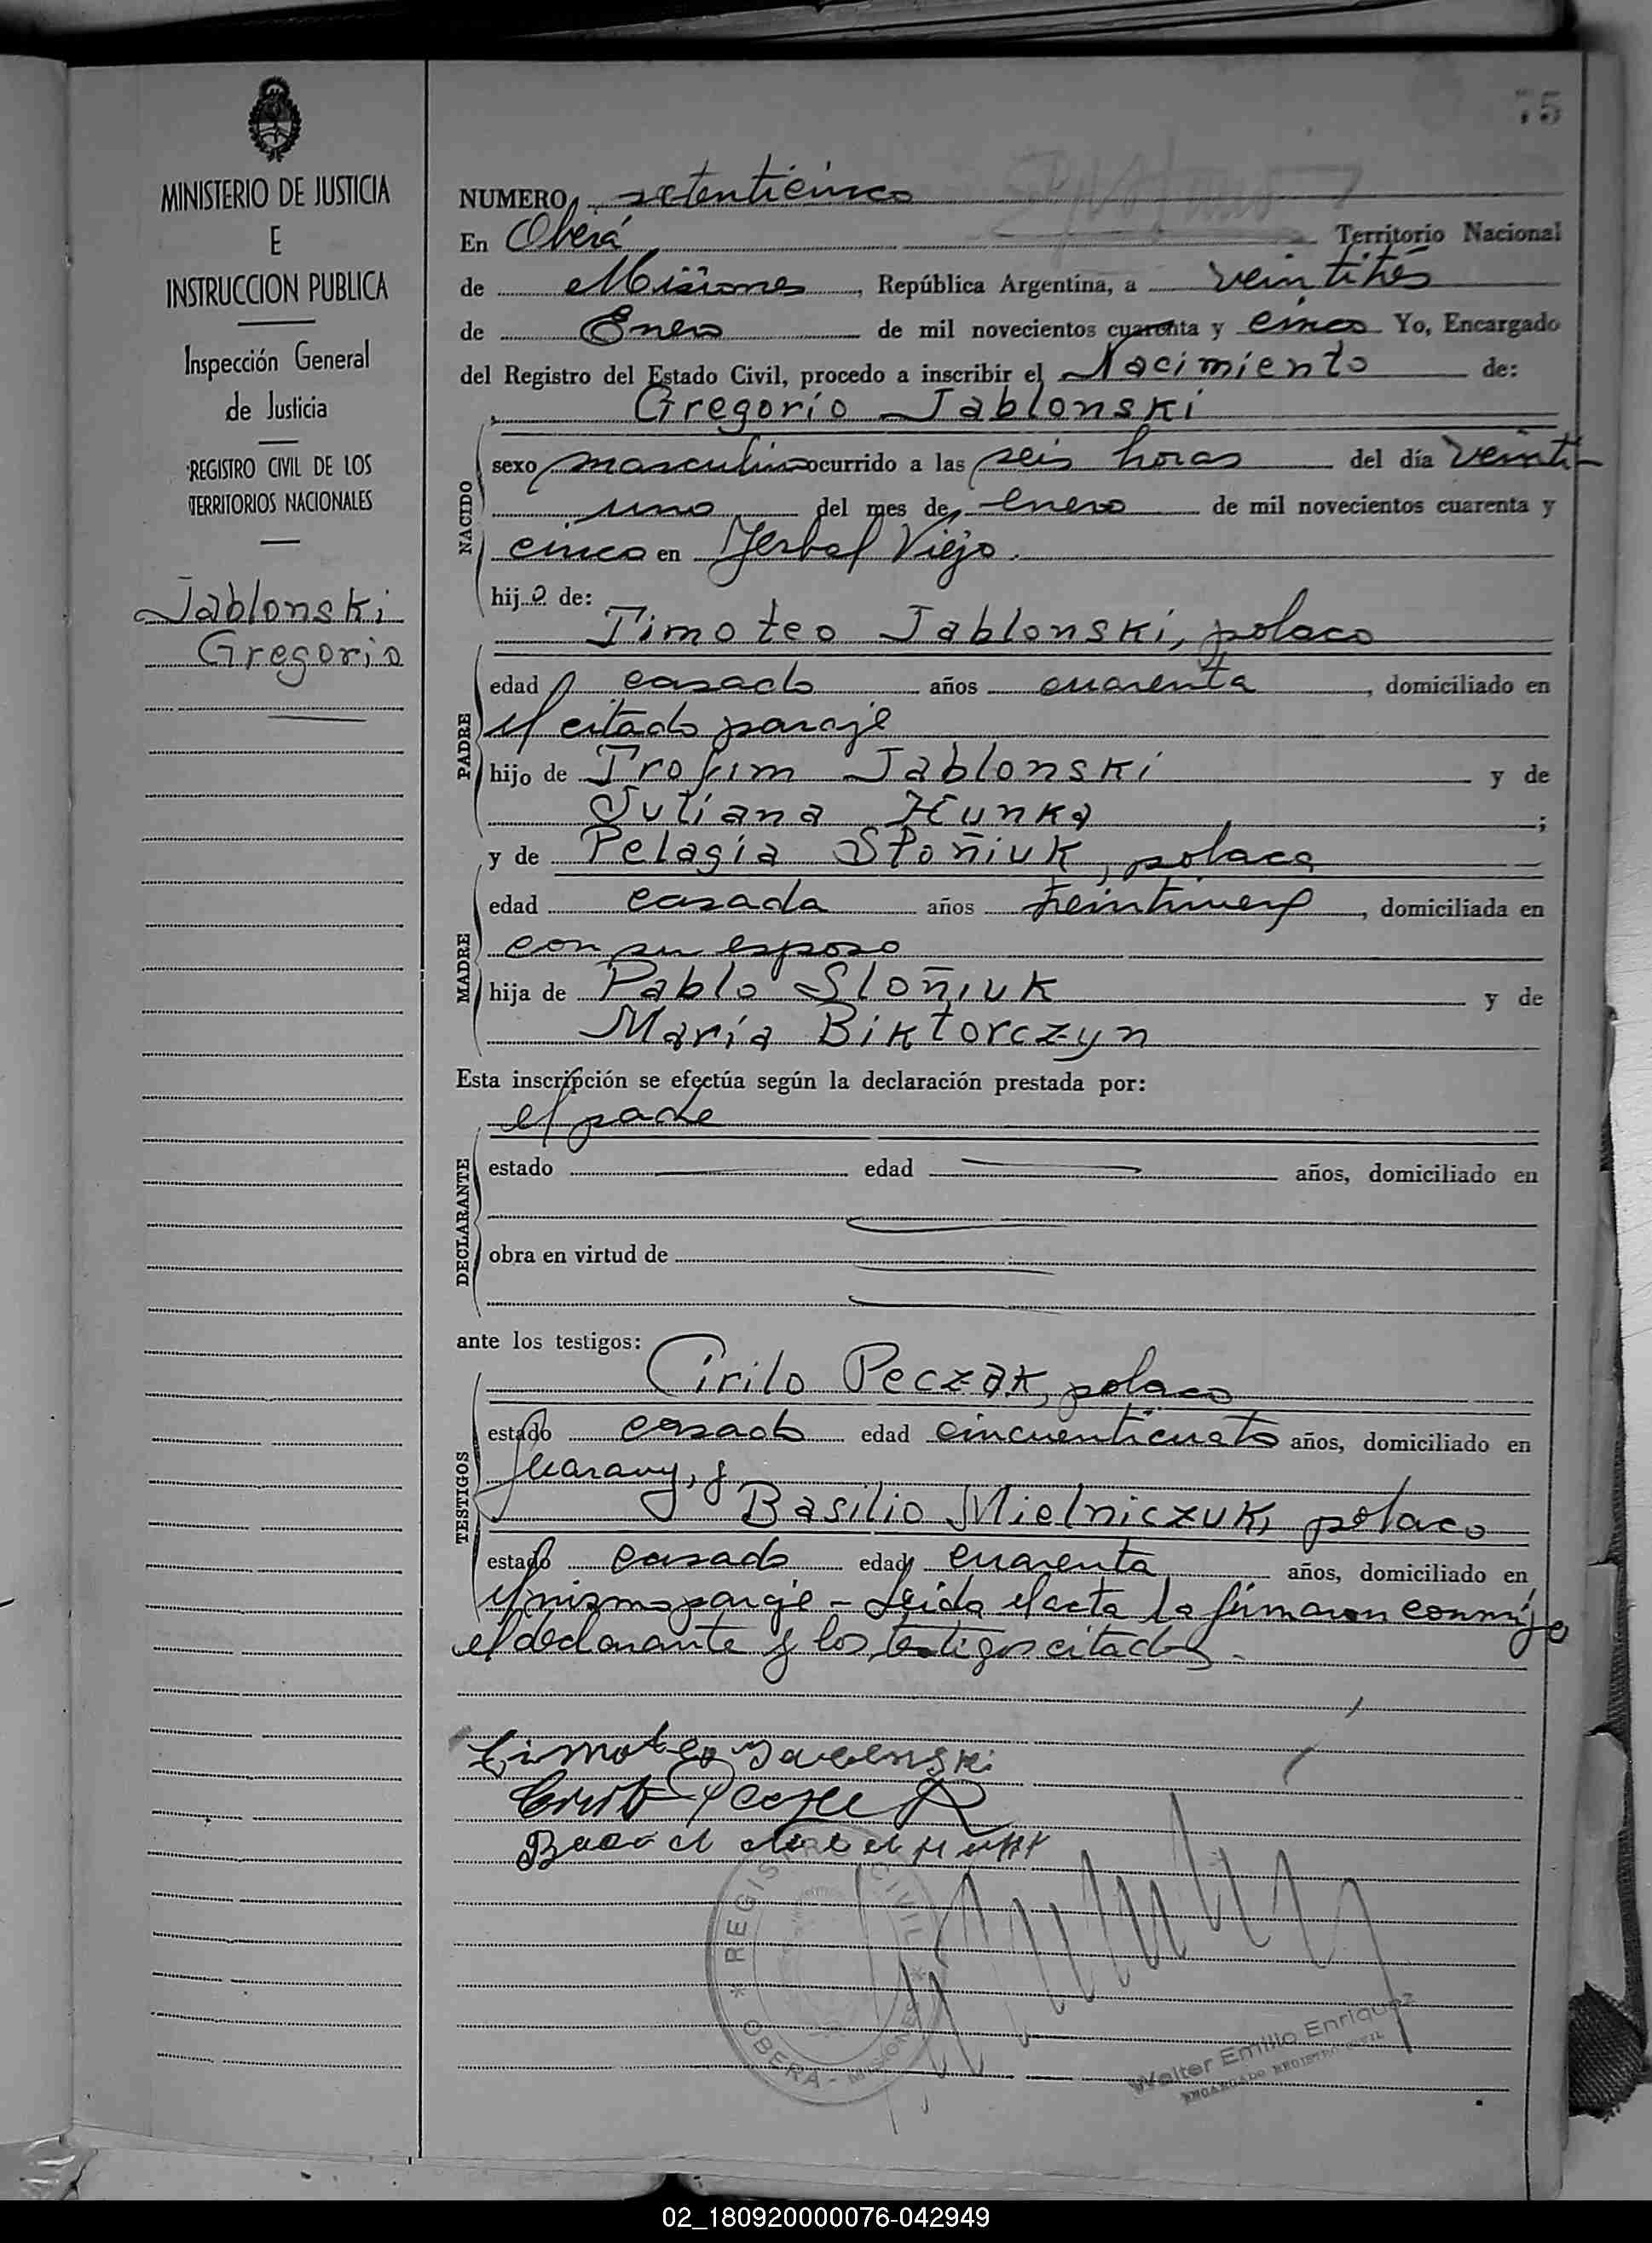 75
MINISTERIO DE JUSTICIA
E
INSTRUCCION PUBLICA
Inspección General
de Justicia
REGISTRO CIVIL DE LOS
TERRITORIOS NACIONALES
Jablonski
Gregorio
NUMERO setenticinco
En Oberá Territorio Nacional
de Misiones, República Argentina, a veintitrés
de Enero de mil novecientos cuarenta y cinco Yo, Encargado
del Registro del Estado Civil, procedo a inscribir el Nacimiento de:
Gregorio Jablonski
NACIDO
sexo masculino ocurrido a las seis horas del día veinti-
uno del mes de enero de mil novecientos cuarenta y
cinco en Yerbal Viejo.
hijo de:
Timoteo Jablonski, polaco
PADRE
edad casado años cuarenta, domiciliado en
el citado paraje
hijo de Trofim Jablonski y de
Juliana Hunka ;
y de Pelagia Stoñiuk, polaca
MADRE
edad casada años treintinueve, domiciliada en
con su esposo
hija de Pablo Sloñiuk y de
María Biktorczyn
Esta inscripción se efectúa según la declaración prestada por:
el padre
DECLARANTE
estado edad años, domiciliado en
obra en virtud de
ante los testigos:
Cirilo Peczak, polaco
TESTIGOS
estado casado edad cincuenticuatro años, domiciliado en
Guarany, y
Basilio Mielniczuk, polaco
estado casado edad cuarenta años, domiciliado en
el mismo paraje - Leída el acta la firmaron conmigo
el declarante y los testigos citados.
Timoteo Jablonski
REGISTRO CIVIL
* OBERA - MISIONES *
Walter Emilio Enriquez
ENCARGADO REGISTRO CIVIL
02_180920000076-042949